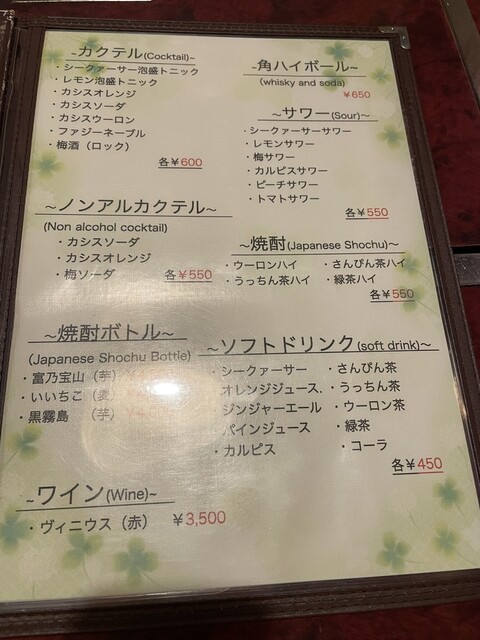 ~カクテル(Cocktail)~
・シークァーサー泡盛トニック
・レモン泡盛トニック
・カシスオレンジ
・カシスソーダ
・カシスウーロン
・ファジーネーブル
・梅酒（ロック）
各￥600
~ノンアルカクテル~
(Non alcohol cocktail)
・カシスソーダ
・カシスオレンジ
・梅ソーダ 各￥550
~焼酎ボトル~
(Japanese Shochu Bottle)
・富乃宝山（芋）
・いいちこ（麦
・黒霧島 （芋）
~ワイン(Wine)~
・ヴィニウス（赤） ￥3,500
~角ハイボール~
(whisky and soda)
￥650
~サワー(Sour)~
・シークァーサーサワー
・レモンサワー
・梅サワー
・カルピスサワー
・ピーチサワー
・トマトサワー
各￥550
~焼酎(Japanese Shochu)~
・ウーロンハイ ・さんぴん茶ハイ
・うっちん茶ハイ ・緑茶ハイ
各￥550
~ソフトドリンク(soft drink)~
・シークァーサー ・さんぴん茶
オレンジジュース. ・うっちん茶
ジンジャーエール ・ウーロン茶
パインジュース ・緑茶
・カルピス ・コーラ
各￥450